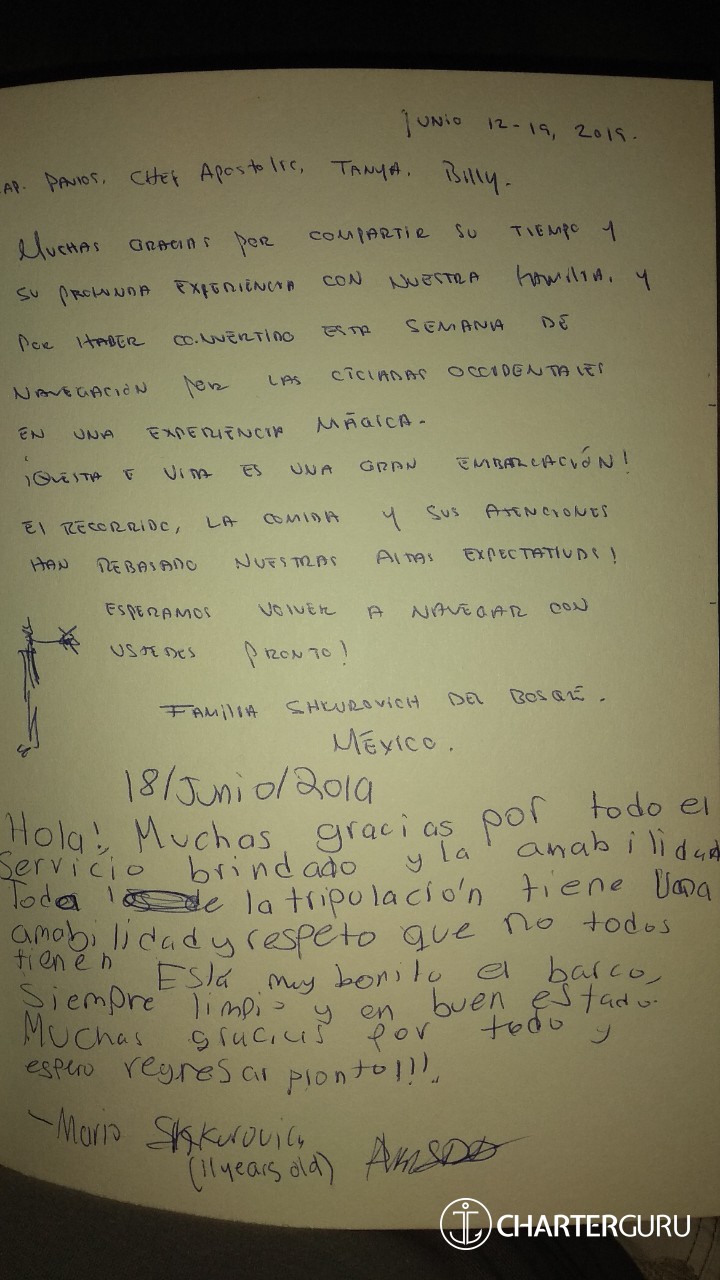 Junio 12-19, 2019.
AP. Panos, Chef Apostolis, Tanya, Billy.
Muchas gracias por compartir su tiempo y
su profunda experiencia con nuestra familia, y
por haber convertido esta semana de
navegación por las Cicladas Occidentales
en una experiencia mágica.
¡Questa e Vita es una gran embarcación!
El recorrido, la comida y sus atenciones
han rebasado nuestras altas expectativas!
Esperamos volver a navegar con
ustedes pronto!
Familia Shkurovich Del Bosque.
México.
18/Junio/2019
Hola! Muchas gracias por todo el
servicio brindado y la amabilidad
Toda de la tripulación tiene una
amabilidad y respeto que no todos
tienen Está muy bonito el barco,
Siempre limpio y en buen estado.
Muchas gracias por todo y
espero regresar pronto!!!.
-Mario Shkurovich
(11 years old)
CHARTERGURU